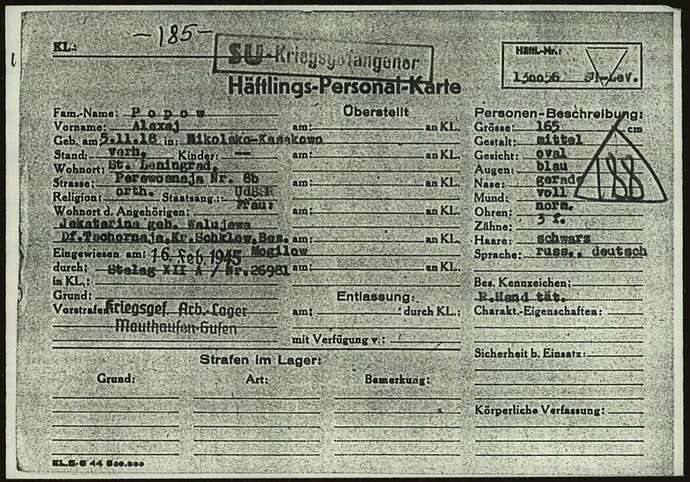 -185-
KL.:
SU-Kriegsgefangener
Häftl.-Nr.:
130056
Häftlings-Personal-Karte
Fam.-Name: Popow
Vorname: Alexej
Geb. am 5.11.18 in: Nikolsko-Kasakowo
Stand: verh. Kinder: —
Wohnort: St. Leningrad,
Strasse: Perewosnaja Nr. 8b
Religion: orth. Staatsang.: UdSSR
Wohnort d. Angehörigen: Frau:
Jekaterina geb. Walujewa
Df. Tschornaja, Kr. Schklow, Bez.
Eingewiesen am: 16. Feb. 1945 Mogilow
durch: Stalag XII A / Nr. 26981
in KL.:
Grund:
Vorstrafen:
Kriegsgef. Arb.-Lager
Mauthausen-Gusen
Überstellt
am: an KL.
am: an KL.
am: an KL.
am: an KL.
am: an KL.
am: an KL.
Entlassung:
am: durch KL.:
mit Verfügung v.:
Personen-Beschreibung:
Grösse: 165 cm
Gestalt: mittel
Gesicht: oval
Augen: blau
Nase: gerade
Mund: voll
Ohren: norm.
Zähne: 3 f.
Haare: schwarz
Sprache: russ., deutsch
188
Bes. Kennzeichen:
R.Hand tät.
Charakt.-Eigenschaften:
Sicherheit b. Einsatz:
Körperliche Verfassung:
Strafen im Lager:
Grund: Art: Bemerkung: